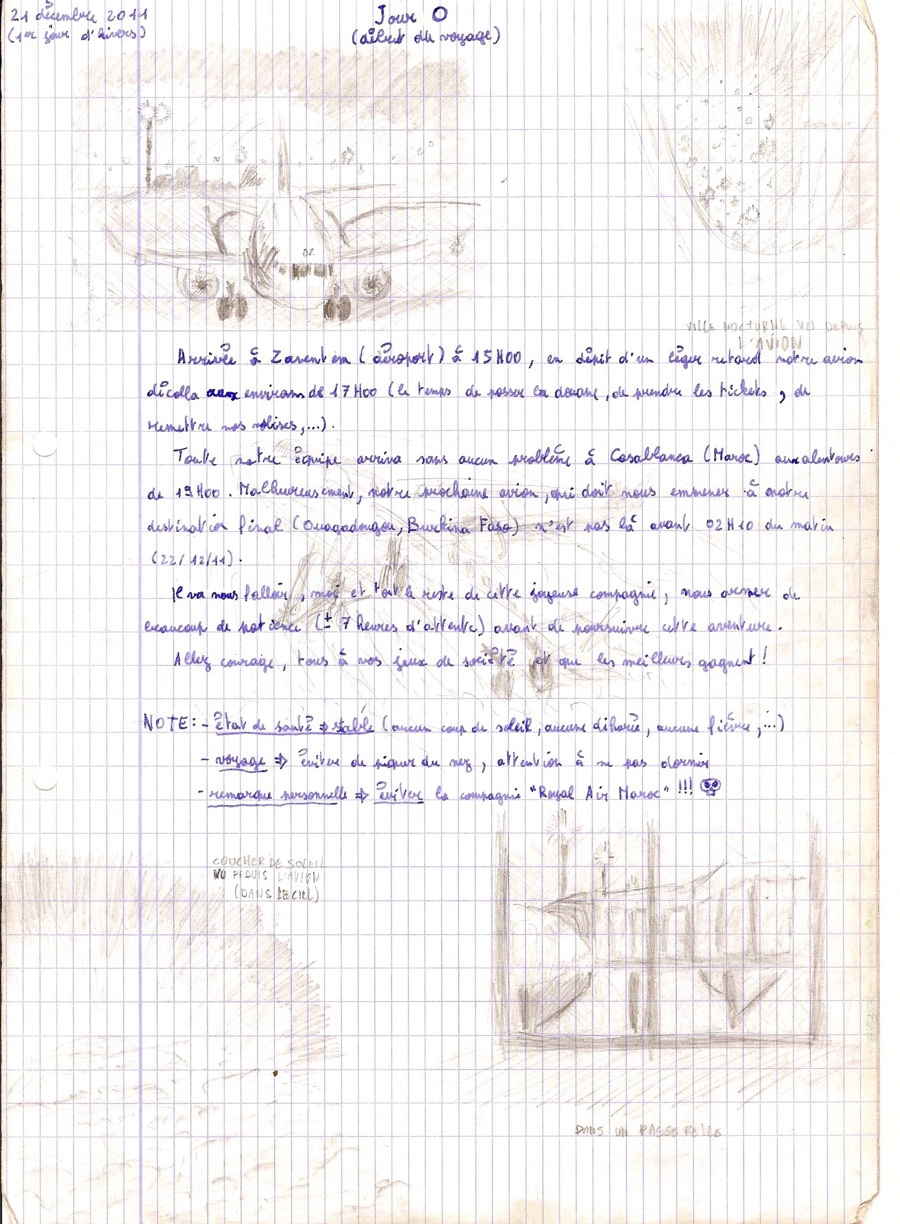 21 décembre 2011
(1er jour d'hivers)
Jour 0
(début du voyage)
VILLE NOCTURNE VU DEPUIS
L'AVION
Arrivée à Zaventem (aéroport) à 15H00, en dépit d'un léger retard notre avion
décolla aux environs de 17H00 (le temps de passer la douane, de prendre les tickets, de
remettre nos valises,...).
Toute notre équipe arriva sans aucun problème à Casablanca (Maroc) aux alentours
de 19H00. Malheureusement, notre prochaine avion, qui doit nous emmener à notre
destination final (Ouagadougou, Burkina Faso) n'est pas là avant 02H10 du matin
(22/12/11).
Il va nous falloir, moi et tout le reste de cette joyeuse compagnie, nous armer de
beaucoup de patience (± 7 heures d'attente) avant de poursuivre cette aventure.
Allez courage, tous à vos jeux de société et que les meilleurs gagnent !
NOTE: - état de santé => stable (aucun coup de soleil, aucune diharée, aucune fièvre,...)
- voyage => éviter de piquer du nez, attention à ne pas dormir
- remarque personnelle => éviter la compagnie "Royal Air Maroc" !!!
COUCHER DE SOLEIL
VU DEPUIS L'AVION
(DANS LE CIEL)
DANS UN PASSERELLE